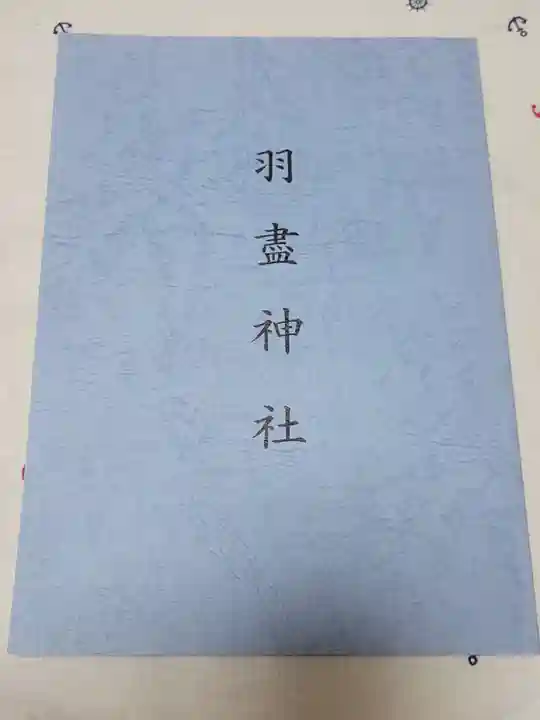 羽盡神社